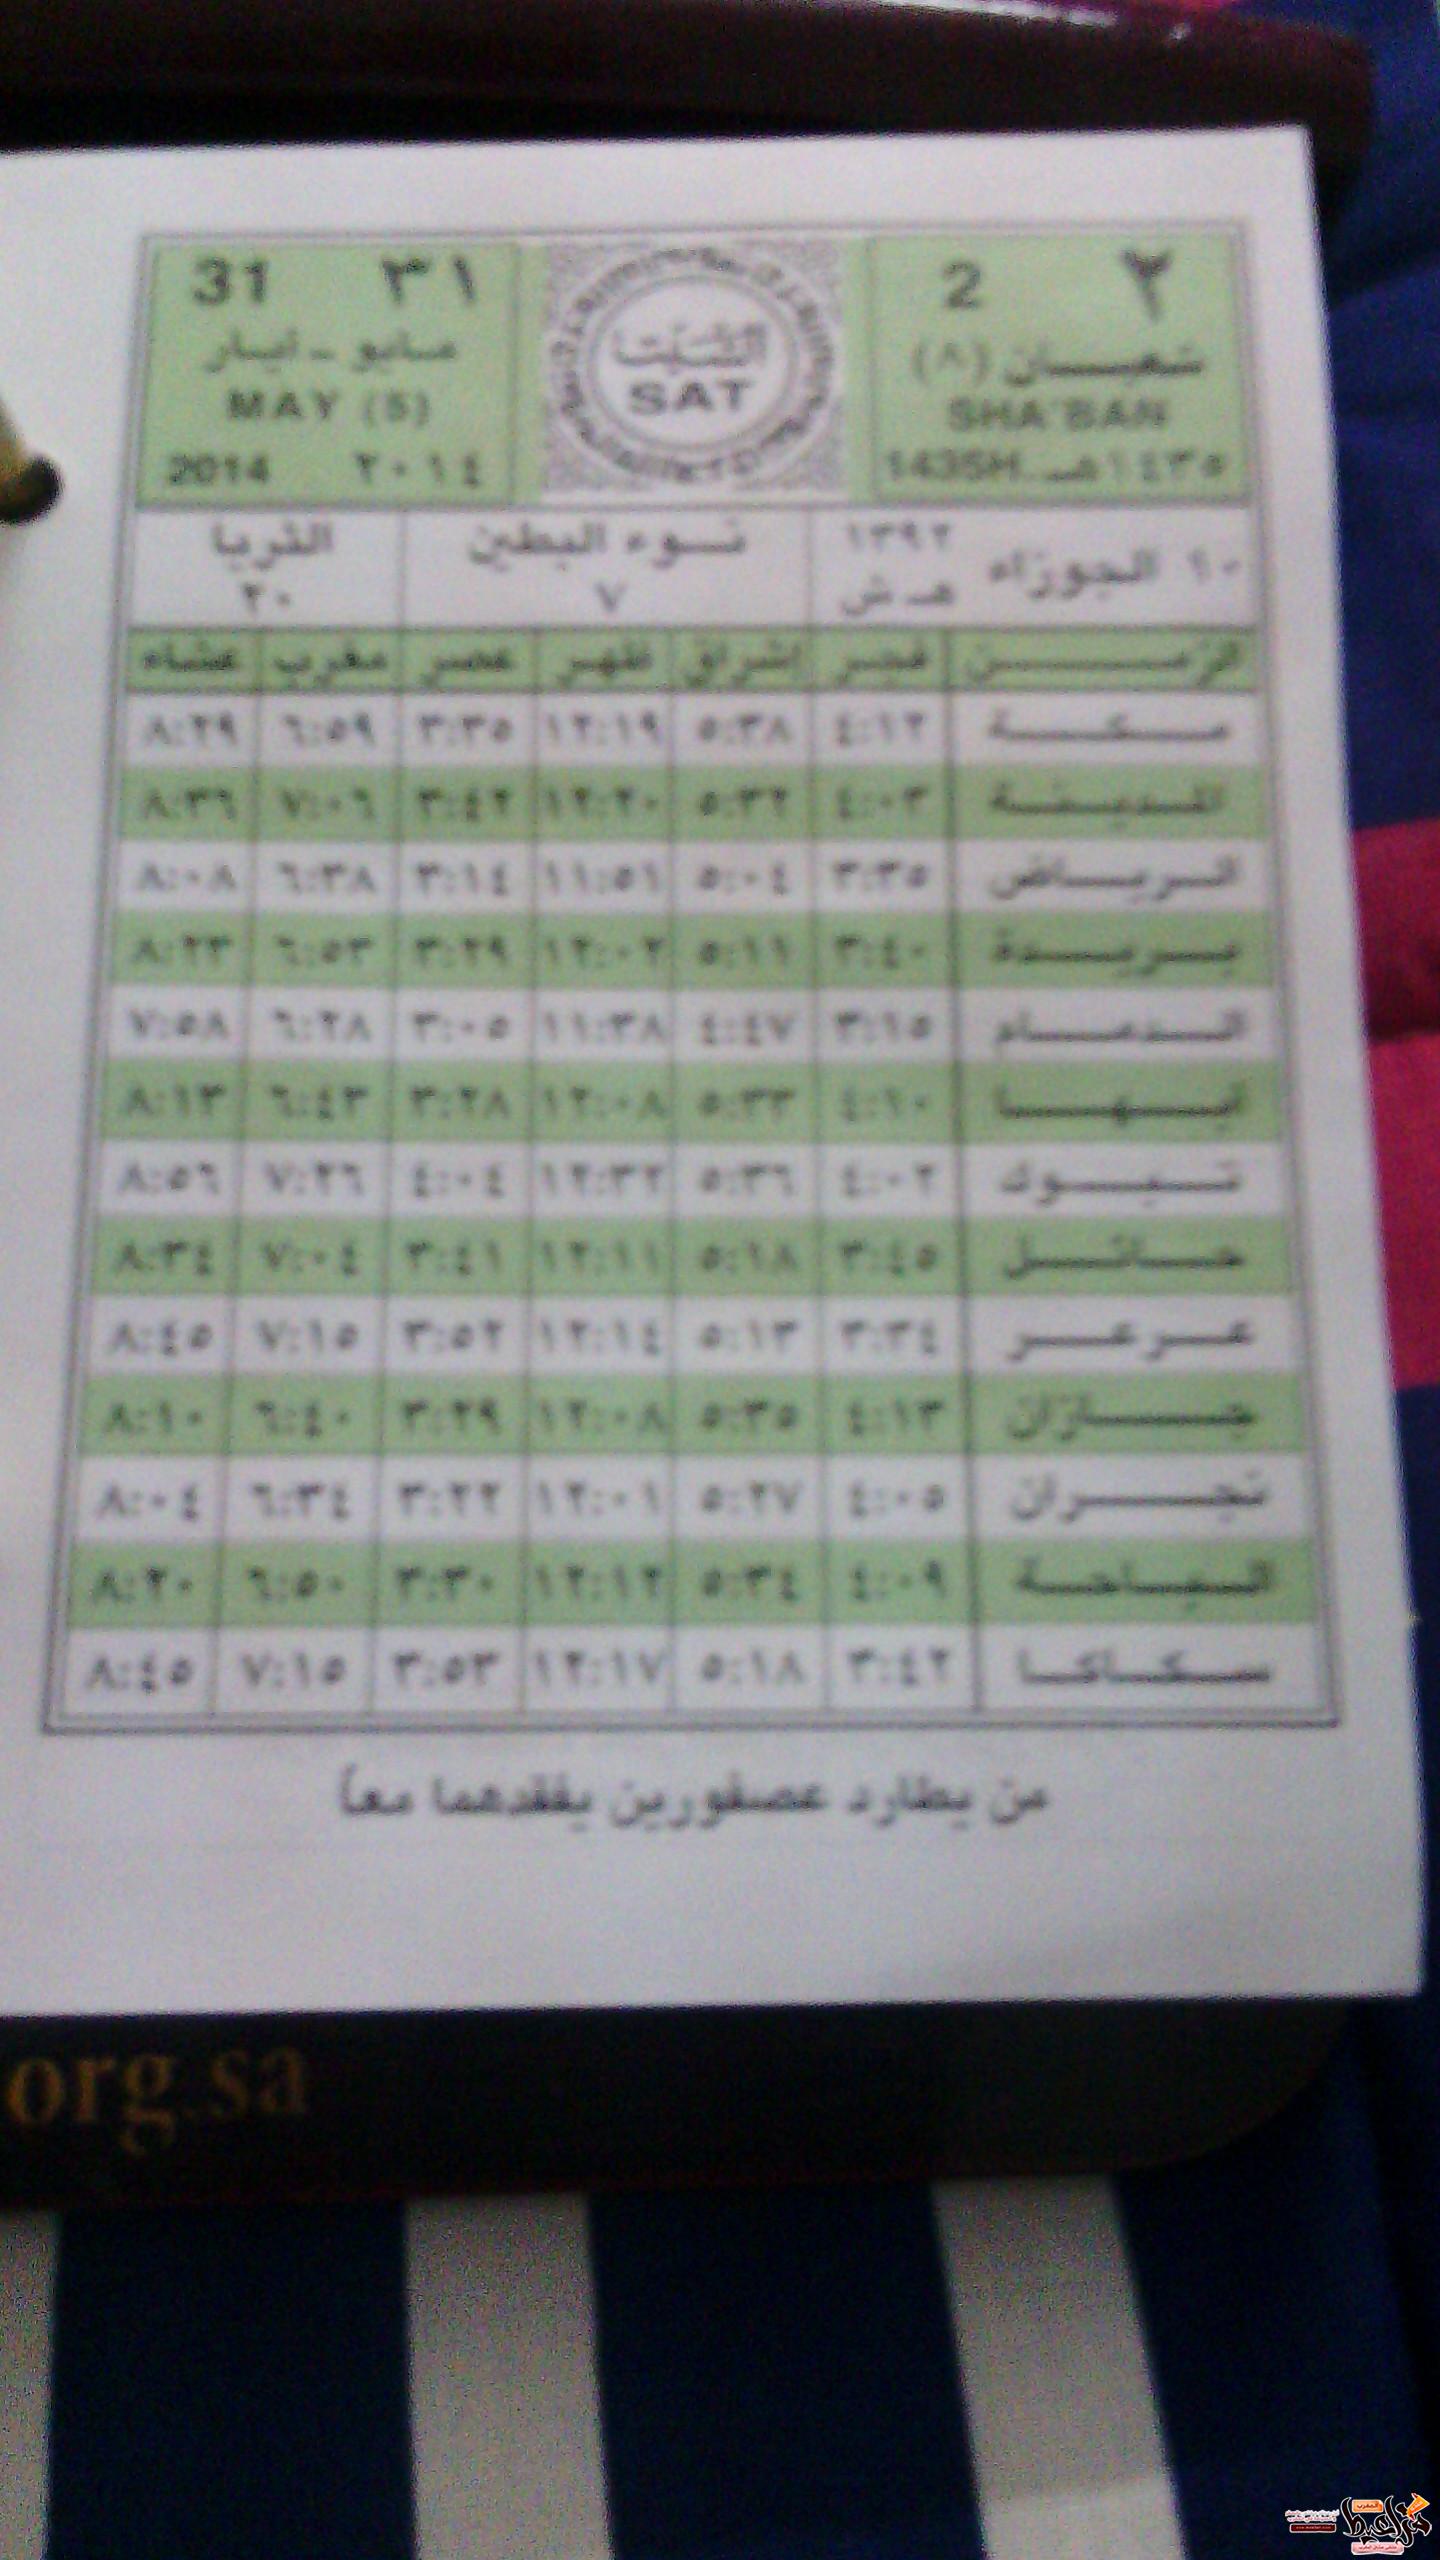 ٢ 2
شعبان (٨)
SHA'BAN
1435H. ١٤٣٥هـ
السبت
SAT
31 ٣١
مايو - أيار
MAY (5)
2014 ٢٠١٤
١٠ الجوزاء ١٣٩٢ هـ ش
نوء البطين ٧
الثريا ٢٠
الزمن فجر إشراق ظهر عصر مغرب عشاء
مكة ٤:١٢ ٥:٣٨ ١٢:١٩ ٣:٣٥ ٦:٥٩ ٨:٢٩
المدينة ٤:٠٣ ٥:٣٢ ١٢:٢٠ ٣:٤٢ ٧:٠٦ ٨:٣٦
الرياض ٣:٣٥ ٥:٠٤ ١١:٥١ ٣:١٤ ٦:٣٨ ٨:٠٨
بريدة ٣:٤٠ ٥:١١ ١٢:٠٢ ٣:٢٩ ٦:٥٣ ٨:٢٣
الدمام ٣:١٥ ٤:٤٧ ١١:٣٨ ٣:٠٥ ٦:٢٨ ٧:٥٨
أبها ٤:١٠ ٥:٣٣ ١٢:٠٨ ٣:٢٨ ٦:٤٣ ٨:١٣
تبوك ٤:٠٢ ٥:٣٦ ١٢:٣٢ ٤:٠٤ ٧:٢٦ ٨:٥٦
حائل ٣:٤٥ ٥:١٨ ١٢:١١ ٣:٤١ ٧:٠٤ ٨:٣٤
عرعر ٣:٣٤ ٥:١٣ ١٢:١٤ ٣:٥٢ ٧:١٥ ٨:٤٥
جازان ٤:١٣ ٥:٣٥ ١٢:٠٨ ٣:٢٩ ٦:٤٠ ٨:١٠
نجران ٤:٠٥ ٥:٢٧ ١٢:٠١ ٣:٢٢ ٦:٣٤ ٨:٠٤
الباحة ٤:٠٩ ٥:٣٤ ١٢:١٢ ٣:٣٠ ٦:٥٠ ٨:٢٠
سكاكا ٣:٤٢ ٥:١٨ ١٢:١٧ ٣:٥٣ ٧:١٥ ٨:٤٥
من يطارد عصفورين يفقدهما معاً
org.sa